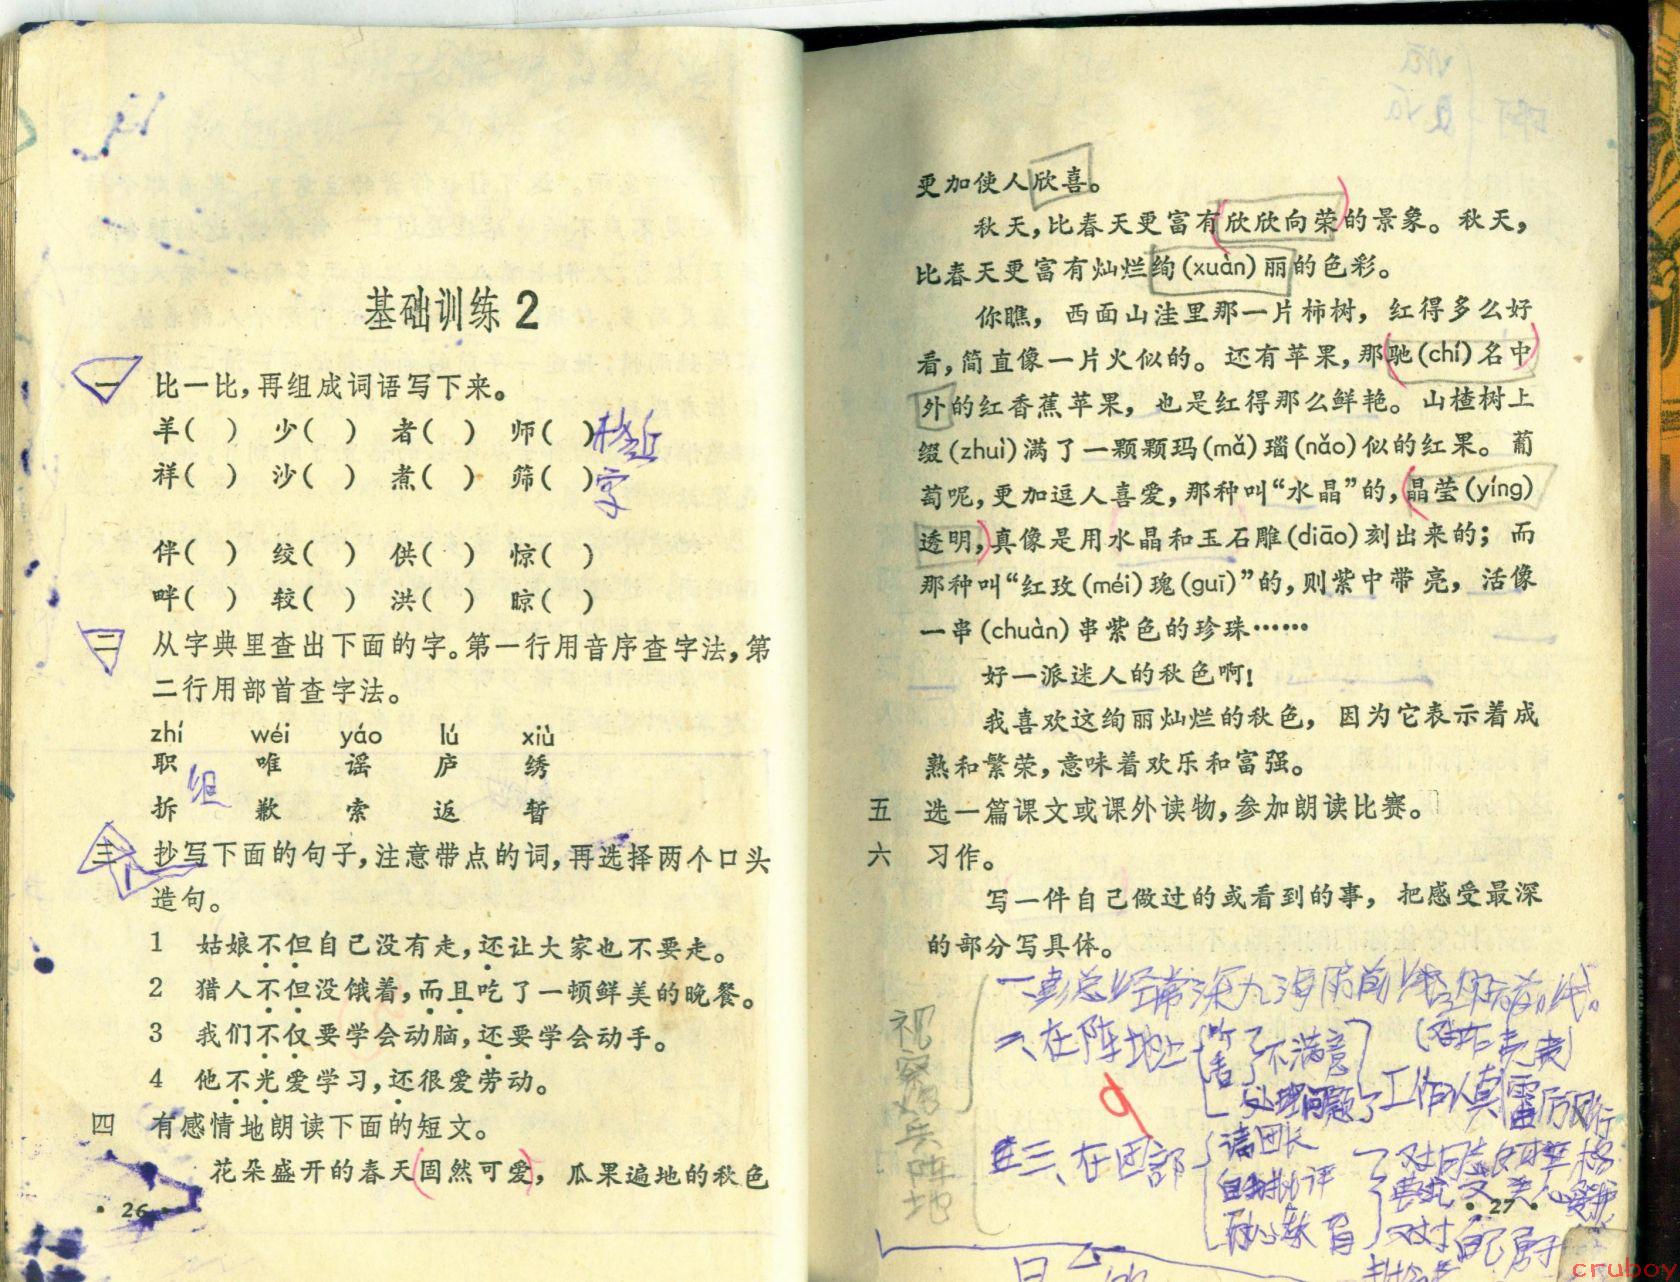 基础训练2
一 比一比,再组成词语写下来。
羊( ) 少( ) 者( ) 师( )
祥( ) 沙( ) 煮( ) 筛( )
伴( ) 绞( ) 供( ) 惊( )
畔( ) 较( ) 洪( ) 晾( )
二 从字典里查出下面的字。第一行用音序查字法,第
二行用部首查字法。
zhí wéi yáo lú xiù
职 唯 谣 庐 绣
组
拆 歉 索 返 暂
三 抄写下面的句子,注意带点的词,再选择两个口头
造句。
1 姑娘不但自己没有走,还让大家也不要走。
2 猎人不但没饿着,而且吃了一顿鲜美的晚餐。
3 我们不仅要学会动脑,还要学会动手。
4 他不光爱学习,还很爱劳动。
四 有感情地朗读下面的短文。
花朵盛开的春天固然可爱,瓜果遍地的秋色
·26·
更加使人欣喜。
秋天,比春天更富有欣欣向荣的景象。秋天,
比春天更富有灿烂绚(xuàn)丽的色彩。
你瞧,西面山洼里那一片柿树,红得多么好
看,简直像一片火似的。还有苹果,那驰(chí)名中
外的红香蕉苹果,也是红得那么鲜艳。山楂树上
缀(zhuì)满了一颗颗玛(mǎ)瑙(nǎo)似的红果。葡
萄呢,更加逗人喜爱,那种叫“水晶”的,晶莹(yíng)
透明,真像是用水晶和玉石雕(diāo)刻出来的;而
那种叫“红玫(méi)瑰(guī)”的,则紫中带亮,活像
一串(chuàn)串紫色的珍珠……
好一派迷人的秋色啊!
我喜欢这绚丽灿烂的秋色,因为它表示着成
熟和繁荣,意味着欢乐和富强。
五 选一篇课文或课外读物,参加朗读比赛。
六 习作。
写一件自己做过的或看到的事,把感受最深
的部分写具体。
一、彭总经常深入海防前线
二、在阵地上
听了不满意
处理问题
工作认真 雷厉风行
三、在团部
请团长
自我批评
·27·
cruboy